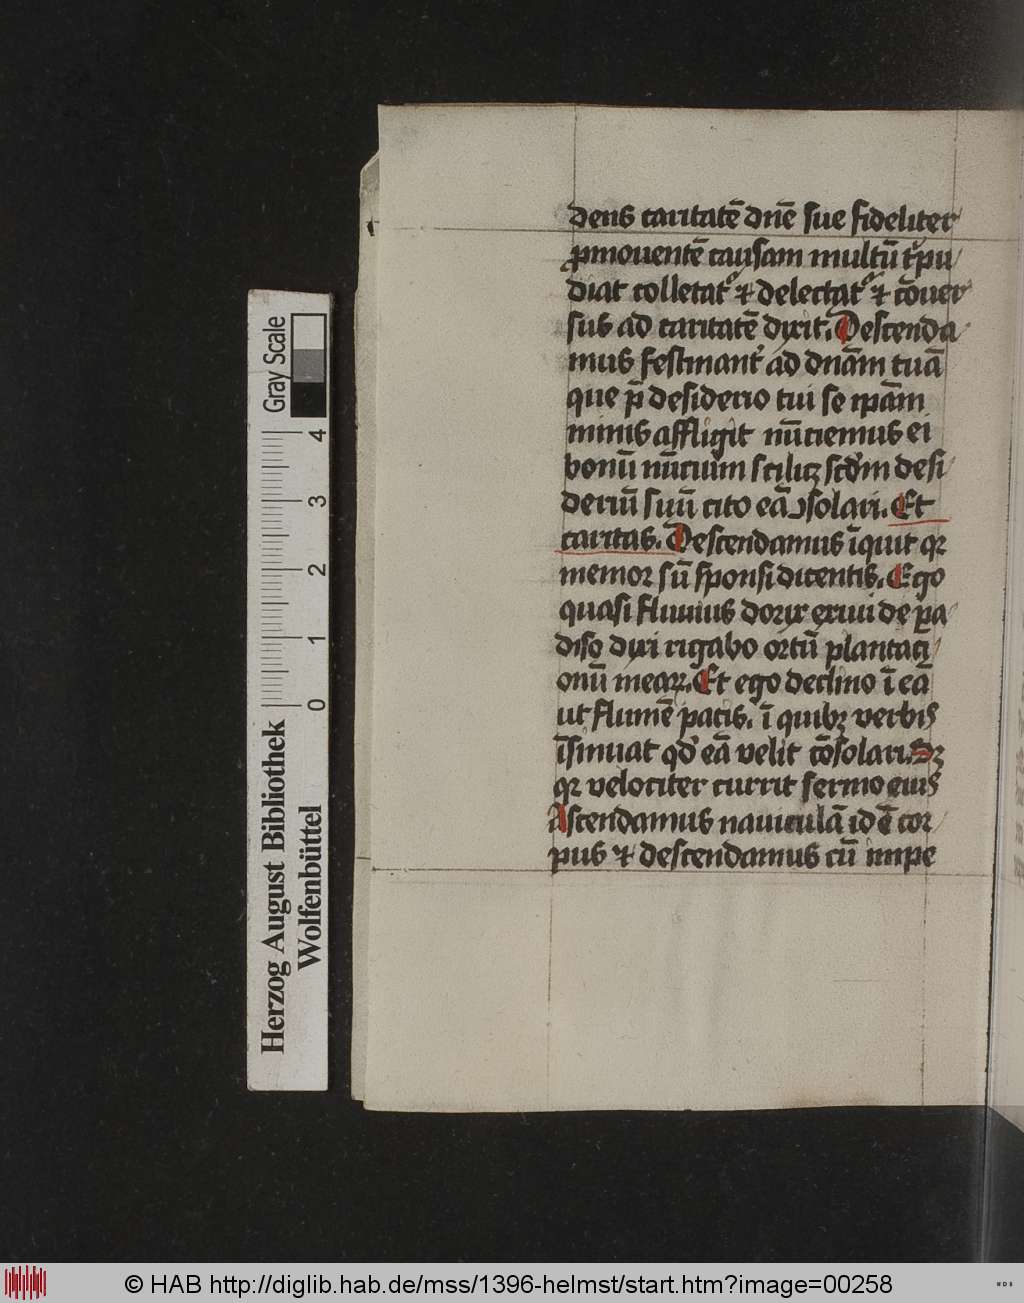 dens caritatē dn̄ē sue fideliter
ꝓmouentē causam multū t͛pu
diat colletat᷑ ⁊ delectat᷑ ⁊ cōuer
sus ad caritatē dixit. Descenda
mus festinant͛ ad dn̄am tuā
que p̄ desiderio tui se ip̄am
nimis affligit nūciemus ei
bonū nūcium scilicꝫ scd̄m desi
deriū suū cito eā ↄsolari. Et
caritas. Descendamus īquit qꝛ
memor sū sponsi dicentis. Ego
quasi fluuius dorix exiui de ꝑa
diso dixi rigabo ortū plantaci
onū meaꝝ. Et ego declino ī eā
ut flumē pacis. ī quibꝫ verbis
īsinuat qd̛ eā velit cōsolari. Sꝫ
qꝛ velociter currit sermo eius
Ascendamus nauiculā id ē cor
pus ⁊ descendamus cū impe
Gray Scale
4
3
2
1
0
Herzog August Bibliothek
Wolfenbüttel
© HAB http://diglib.hab.de/mss/1396-helmst/start.htm?image=00258